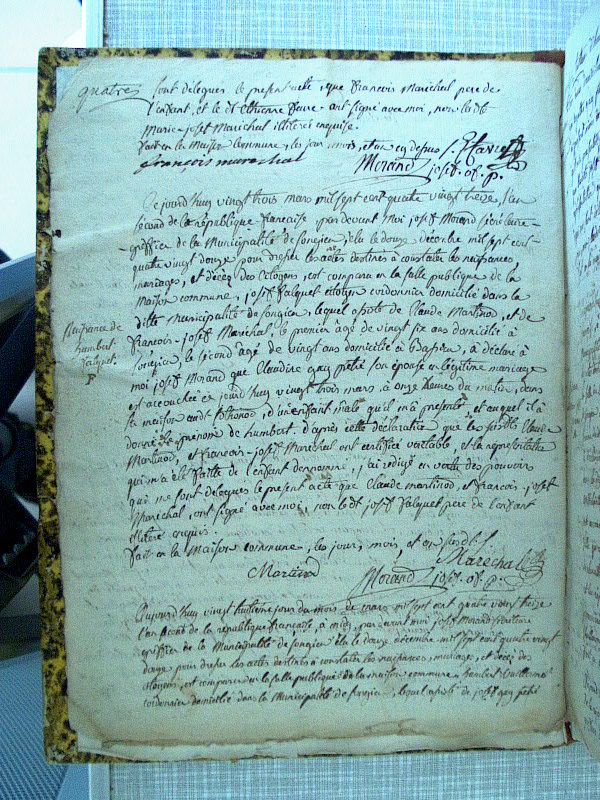 quatres
sont délégués le présent acte, que francois Maréchal pere de
l'enfant, et le dt Etienne favre ont signé avec moi, non la dte
Marie-joset Maréchal illiterée enquise.
fait en la Maison Commune, les jour, mois, et an cy dessus
françois marechal
Morand josef. of. p.
Ce jourd'huy vingt trois mars mil sept cent quatre vingt treize, l'an
second de la république française pardevant Moi josef Morand secretaire
greffier de la Municipalité de songieu, élu le douze décembre mil sept cent
quatre vingt douze pour dresser les actes destinés à constater les naissances,
mariages, et décès des Citoyens, est comparu en la salle publique de la
Maison commune, josef falquet citoyen cordonnier domicilié dans la
ditte municipalité de songieu, lequel assisté de Claude Martinod, et de
francois-josef Maréchal, le premier agé de vingt six ans domicilié à
songieu, le second agé de vingt ans domicilié à Bassieu, à déclaré à
moi josef Morand que Claudine gay son épouse en légitime mariage
est accouchée ce jourd'huy vingt trois mars, à onze heures du matin, dans
sa maison d'un enfant male qu'il m'a présenté, et auquel il a
donné le prenom de humbert. d'après cette déclaration que les susdts Claude
Martinod, et francois-josef Maréchal ont certifié véritable, et la représentation
qui m'a été faitte de l'enfant dénommé, j'ai rédigé en vertu des pouvoirs
qui me sont délégués le présent acte que Claude martinod, et francois, josef
Maréchal, ont signé avec moi, non le dt josef falquet pere de l'enfant
illiteré enquis.
fait en la Maison commune, les jour, mois, et an susdts
Maréchal
Martinod
Morand josef. of. p.
Naissance de
humbert
falquet.
Aujourd'huy vingt huitieme jour du mois de mars mil sept cent quatre vingt treize
l'an second de la république française, à midy, par devant moi josef Morand secretaire
greffier de la Municipalité de songieu élu le douze décembre mil sept cent quatre vingt
douze pour dresser les actes destinés à constater les naissances, mariages, et décès des
citoyens, est comparu en la salle publique de la maison commune humbert
cordonnier domicilié dans la Municipalité de songieu, lequel assisté de josef gay